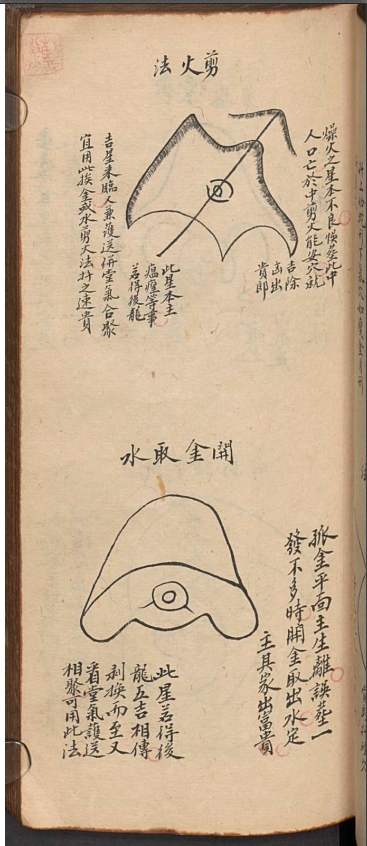 剪火法
燥火之星本不良悞葬此中
人口亡於中剪火能安穴就
吉除
凶出
貴郎
此星本主
瘟𤺺等事
若得後龍
吉星来臨人兼護送併堂氣合聚
宜用此挨金或水剪火法持之速貴
開金取水
孤金平面主生離誤葬一
發不多時開金取出水定
主其家出富貴
此星若得後
龍五吉相傳
剥換而至又
看堂氣護送
相聚可用此法